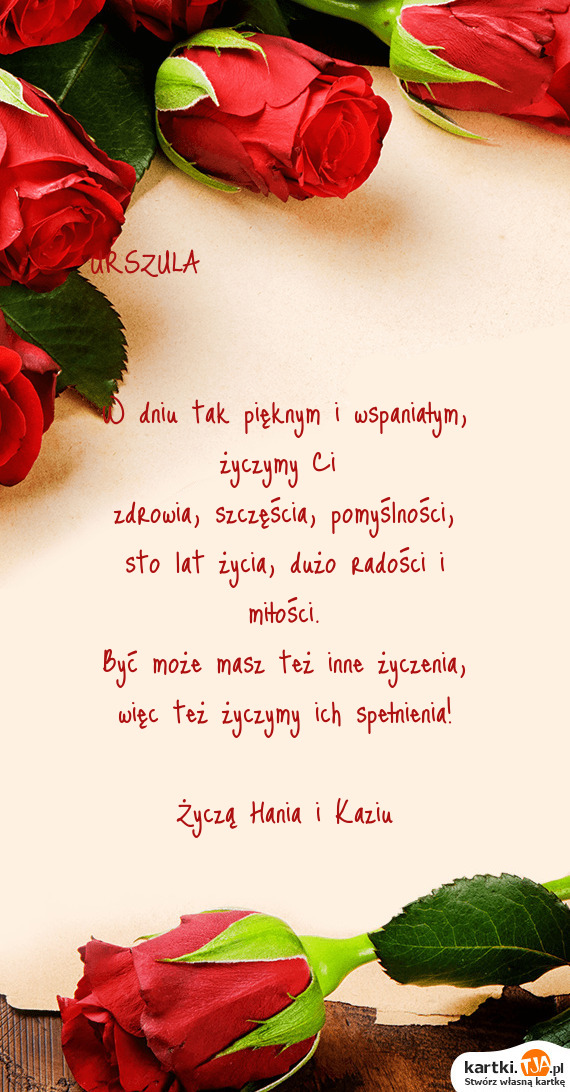 URSZULA
W dniu tak pięknym i wspaniałym,
życzymy Ci
zdrowia, szczęścia, pomyślności,
sto lat życia, dużo radości i
miłości.
Być może masz też inne życzenia,
więc też życzymy ich spełnienia!
Życzą Hania i Kaziu
kartki.TJA.pl
Stwórz własną kartkę